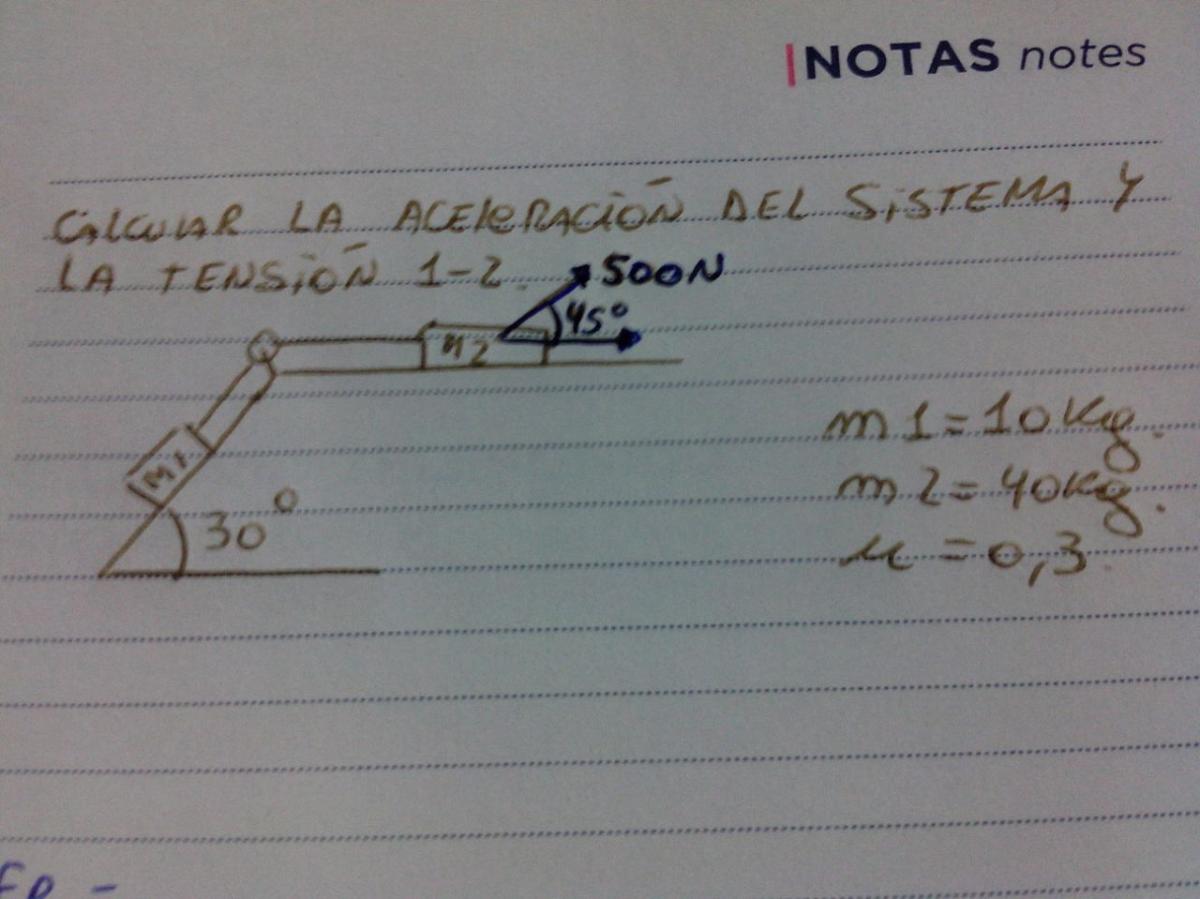 NOTAS notes
CALCULAR LA ACELERACIÓN DEL SISTEMA Y
LA TENSIÓN 1-2.
500N
45°
M2
M1
30°
m1=10Kg.
m2=40Kg.
μ=0,3